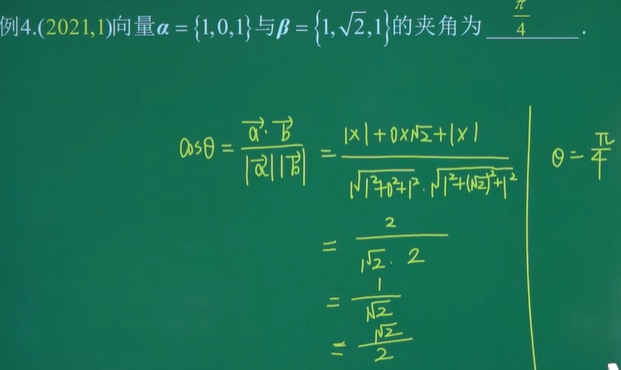 例4.(2021,1)向量α = {1,0,1}与β = {1,√2,1}的夹角为 π/4 .
cosθ = (a⃗·b⃗)/(|a⃗||b⃗|) = (1×1+0×√2+1×1)/(√(1²+0²+1²)·√(1²+(√2)²+1²))
= 2/(√2·2)
= 1/√2
= √2/2
θ = π/4